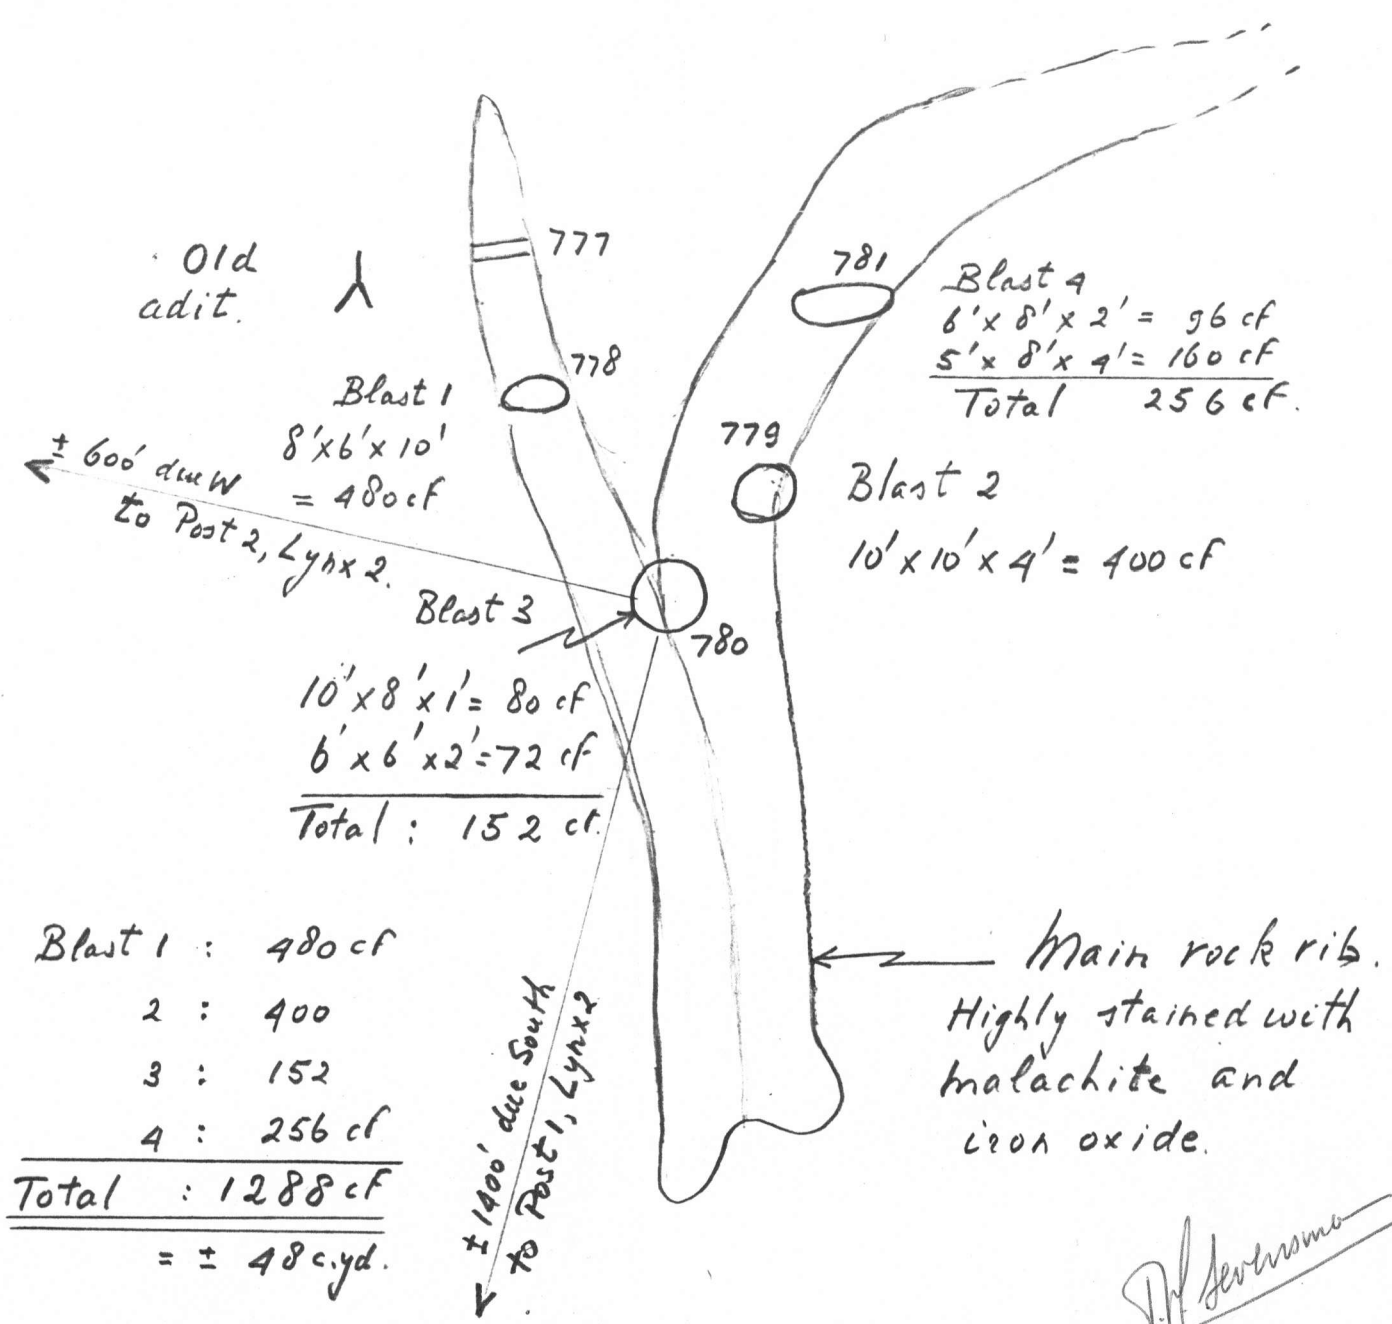 777
Old
adit.
781
Blast 4
6'x 8'x 2' = 96 cf
5'x 8'x 4' = 160 cf
Total 256 cf.
778
Blast 1
8'x6'x10'
= 480 cf
779
Blast 2
10'x10'x4' = 400 cf
± 600' due W
to Post 2, Lynx 2.
Blast 3
780
10'x8'x1'= 80 cf
6'x6'x2'=72 cf
Total : 152 cf.
Blast 1 : 480 cf
2 : 400
3 : 152
4 : 256 cf
Total : 1288 cf
= ± 48 c.yd.
± 1400' due South
to Post 1, Lynx 2
Main rock rib.
Highly stained with
malachite and
iron oxide.